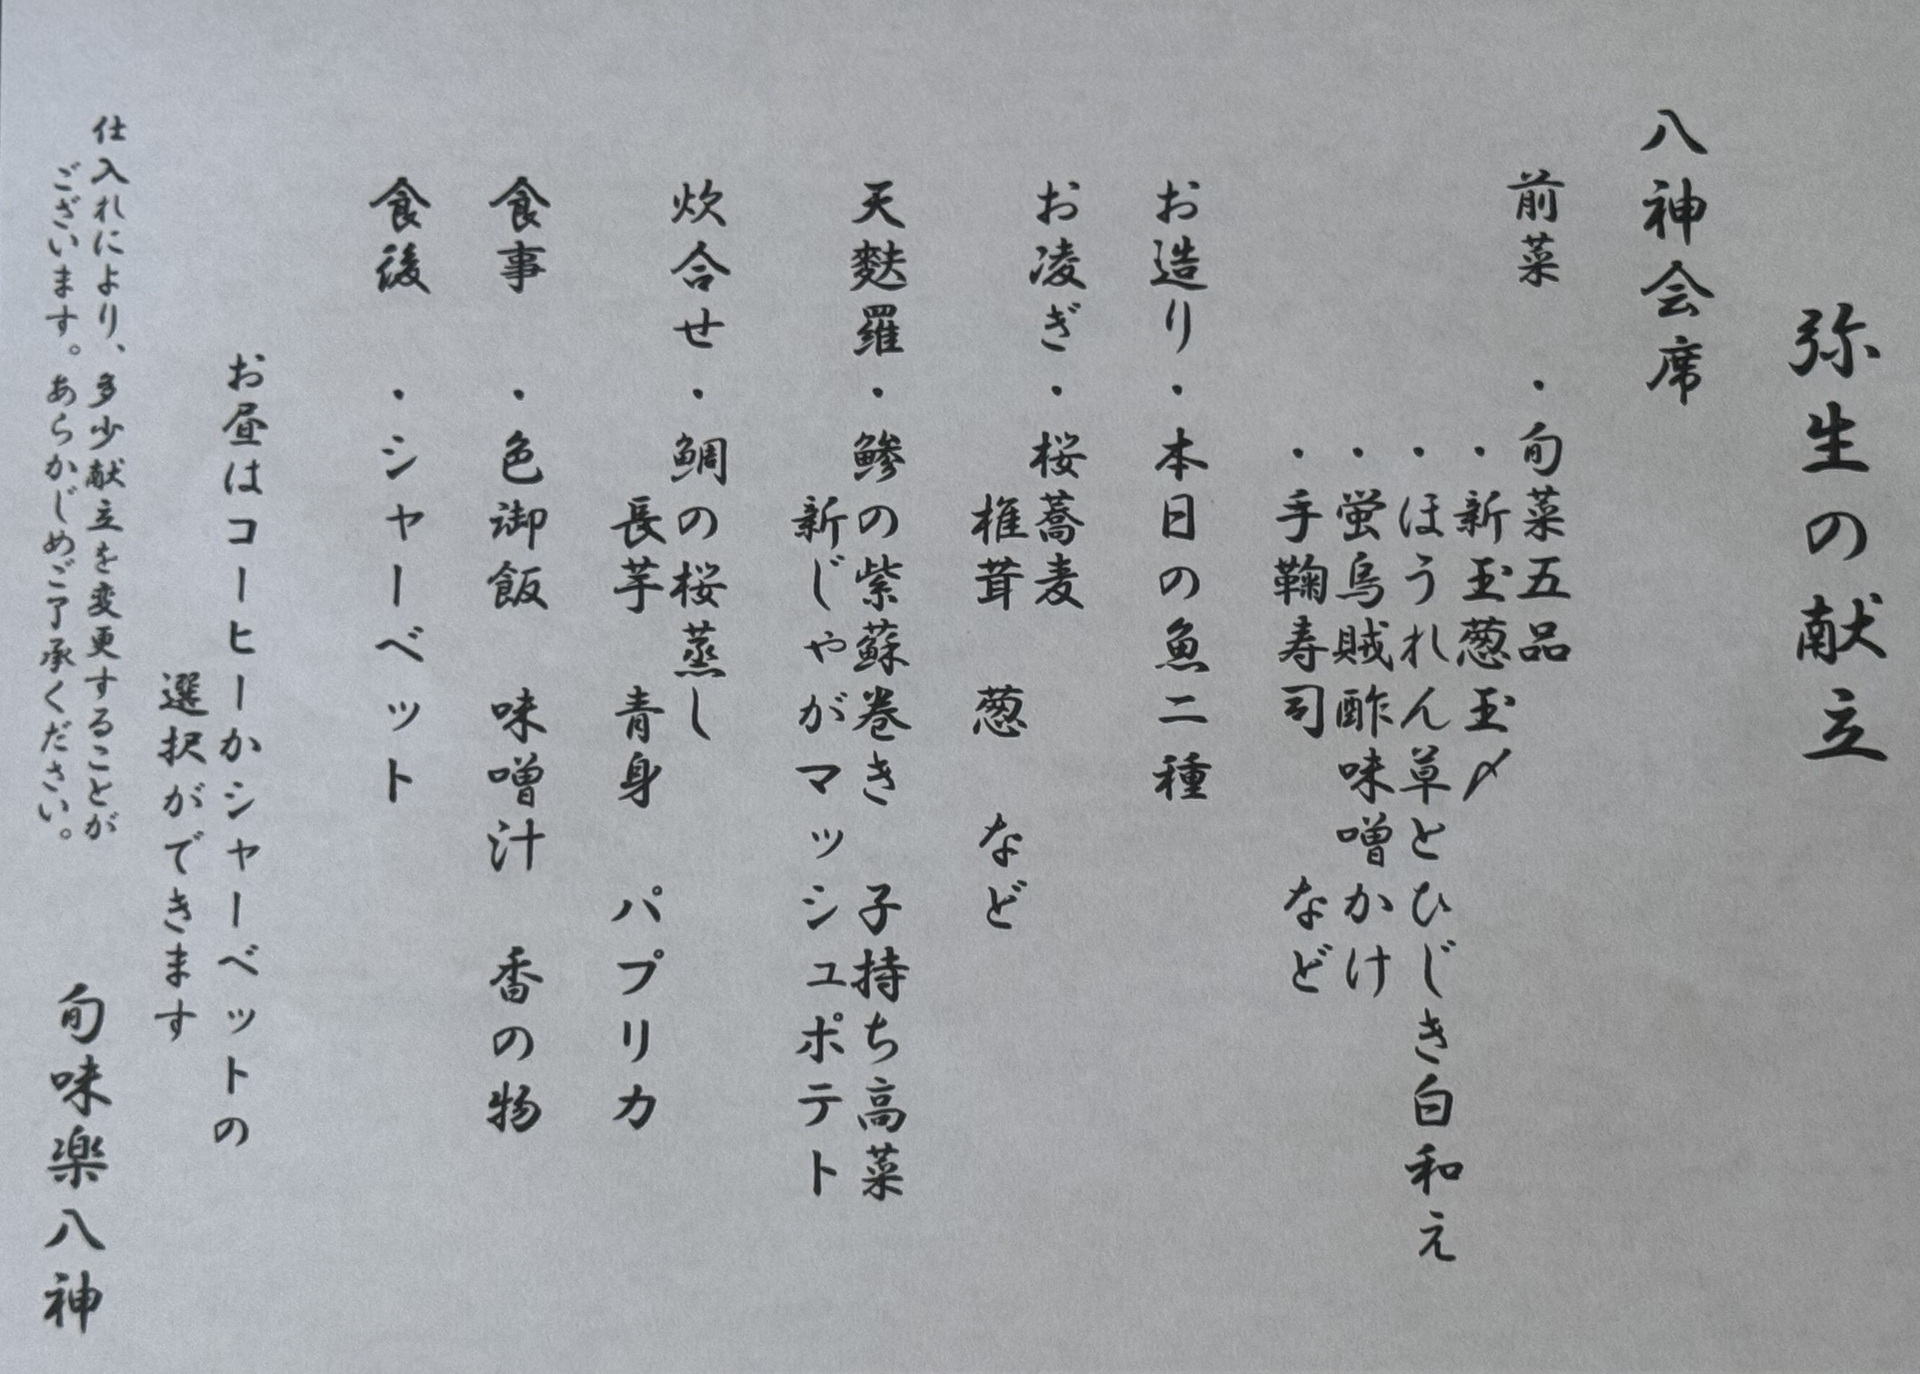 弥生の献立
八神会席
前菜 ・旬菜五品
・新玉葱玉〆
・ほうれん草とひじき白和え
・蛍烏賊酢味噌かけ
・手鞠寿司 など
お造り・本日の魚二種
お凌ぎ・桜蕎麦
椎茸 葱 など
天麩羅・鯵の紫蘇巻き 子持ち高菜
新じゃがマッシュポテト
炊合せ・鯛の桜蒸し
長芋 青身 パプリカ
食事 ・色御飯 味噌汁 香の物
食後 ・シャーベット
お昼はコーヒーかシャーベットの
選択ができます
仕入れにより、多少献立を変更することが
ございます。あらかじめご了承ください。
旬味楽八神